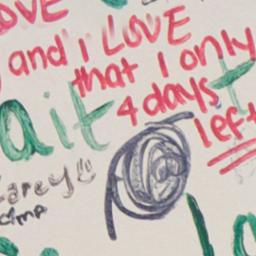 OVE
and i LOVE
that I only
4 days
left
ait
carey
camp